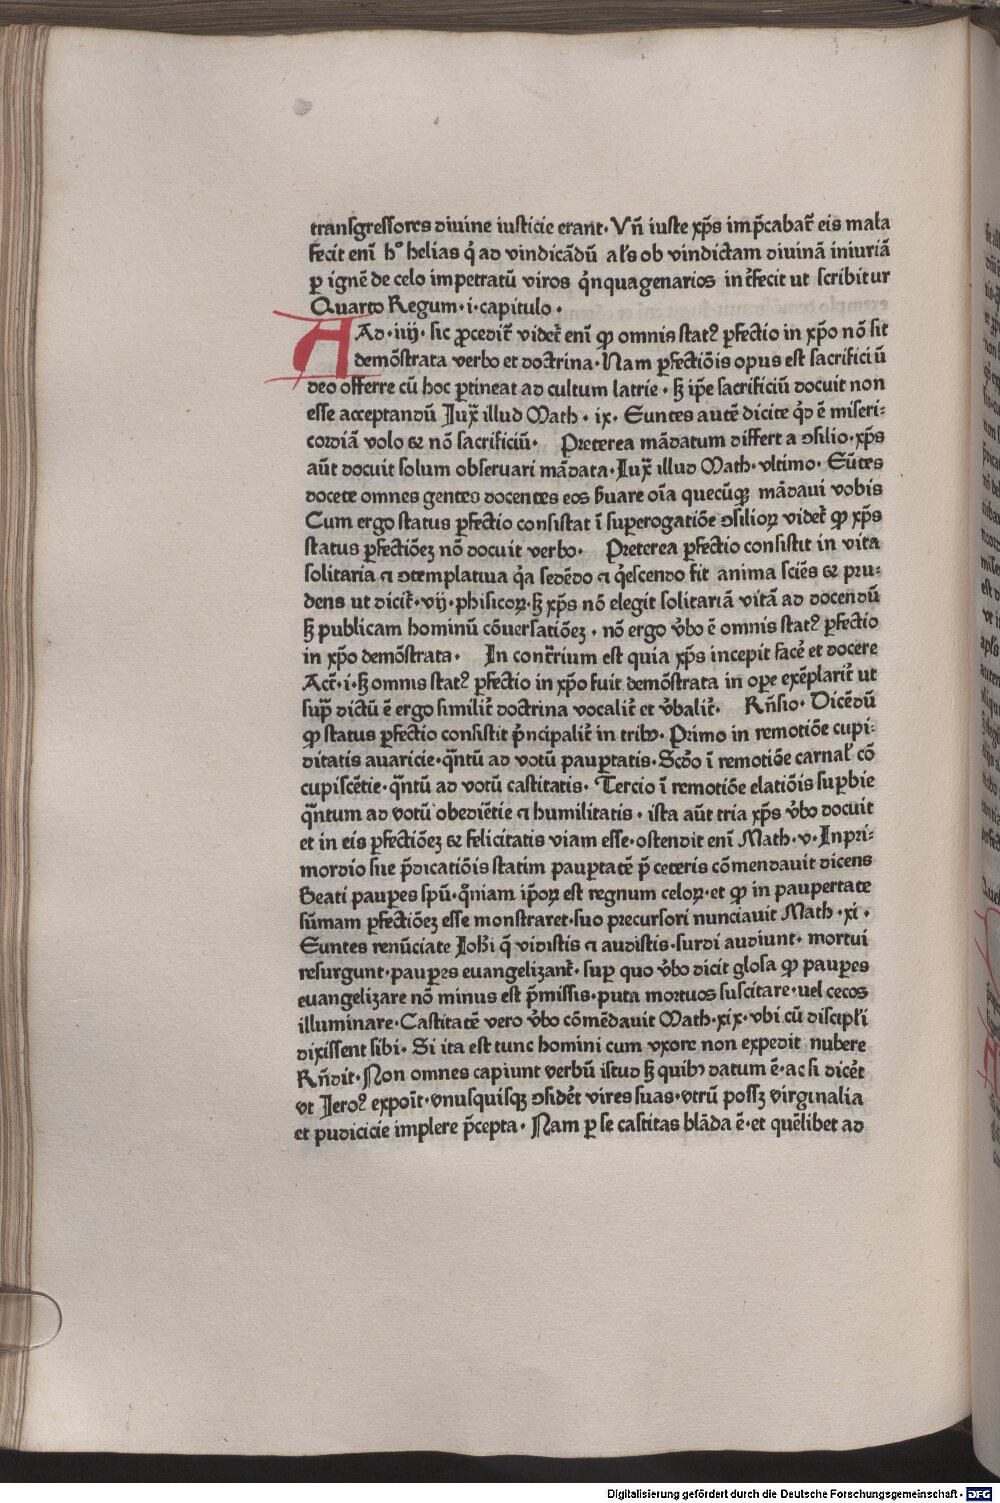 transgressores diuine iusticie erant· Vn̄ iuste xp̄s imp̄cabat᷑ eis mala
fecit enī hͦ helias q́ ad vindicādū al̕s ob vindictam diuinā iniuriā
ꝑ ignē de celo impetratū viros q́nquagenarios int̄fecit ut scribitur
Quarto Regum·i·capitulo·
AD·iiij· sic ꝓcedit᷑ videt᷑ enī ꝙ omnis statꝰ ꝑfectio in xp̄o nō sit
demōstrata verbo et doctrina·Nam ꝑfectiōis opus est sacrificiū
deo offerre cū hoc ꝑtineat ad cultum latrie· ꝫ ip̄e sacrificiū docuit non
esse acceptandū Jux̄ illud Math·ix· Euntes autē dicite q́d ē miseri-
cordiā volo et nō sacrificiū· Preterea mādatum differt a ꝯsilio·xp̄s
aūt docuit solum obseruari mādata·Jux̄ illud Math·vltimo· Eūtes
docete omnes gentes docentes eos ẜuare oīa quecūqꝫ mādaui vobis
Cum ergo status ꝑfectio consistat ī suꝑerogatiōe ꝯsilioꝝ videt᷑ ꝙ xp̄s
status ꝑfectiōeꝫ nō docuit verbo· Preterea ꝑfectio consistit in vita
solitaria ⁊ ꝯtemplatiua q́a sedēdo ⁊ q́escendo fit anima sciēs et pru-
dens ut dicit᷑·vij·phisicoꝝ·ꝫ xp̄s nō elegit solitariā vitā ad docendū
ꝫ publicam hominū cōuersatiōeꝫ· nō ergo v̄bo ē omnis statꝰ ꝑfectio
in xp̄o demōstrata· In cont̄rium est quia xp̄s incepit facē et docere
Act̄·i·ꝫ omnis statꝰ ꝑfectio in xp̄o fuit demōstrata in oꝑe exēplarit᷑ ut
suꝑ dictū ē ergo similit᷑ doctrina vocalit᷑ et v̄balit᷑· Rn̄sio· Dicēdū
ꝙ status ꝑfectio consistit p̄ncipalit᷑ in tribꝰ· Primo in remotiōe cupi-
ditatis auaricie·q̄ntū ad votū pauꝑtatis·Scd̄o ī remotiōe carnal̕ cō
cupiscētie·q̄ntū ad votū castitatis· Tercio ī remotiōe elatiōis suꝑbie
q̄ntum ad votū obediētie ⁊ humilitatis· ista aūt tria xp̄s v̄bo docuit
et in eis ꝑfectiōeꝫ et felicitatis viam esse·ostendit enī Math·v·Inpri-
mordio sue p̄dicatiōis statim pauꝑtatē p̄ ceteris cōmendauit dicens
Beati pauꝑes spū·q̄niam ip̄oꝝ est regnum celoꝝ·et ꝙ in paupertate
sūmam ꝑfectiōeꝫ esse monstraret·suo precursori nunciauit Math·xi·
Euntes renūciate Joh̄i q̄ vidistis ⁊ audistis·surdi audiunt· mortui
resurgunt·pauꝑes euangelizant᷑· suꝑ quo v̄bo dicit glosa ꝙ pauꝑes
euangelizare nō minus est p̄missis·puta mortuos suscitare·uel cecos
illuminare·Castitatē vero v̄bo cōmēdauit Math·xix·vbi cū discipl̕i
dixissent sibi· Si ita est tunc homini cum vxore non expedit nubere
Rn̄dit·Non omnes capiunt verbū istud ꝫ quibꝰ datum ē·ac si dicēt
vt Jeroꝰ expoīt·vnusquisqꝫ ꝯsidēt vires suas·vtrū possꝫ virginalia
et pudicicie implere p̄cepta· Nam ꝑ se castitas blāda ē·et quēlibet ad
Digitalisierung gefördert durch die Deutsche Forschungsgemeinschaft - DFG